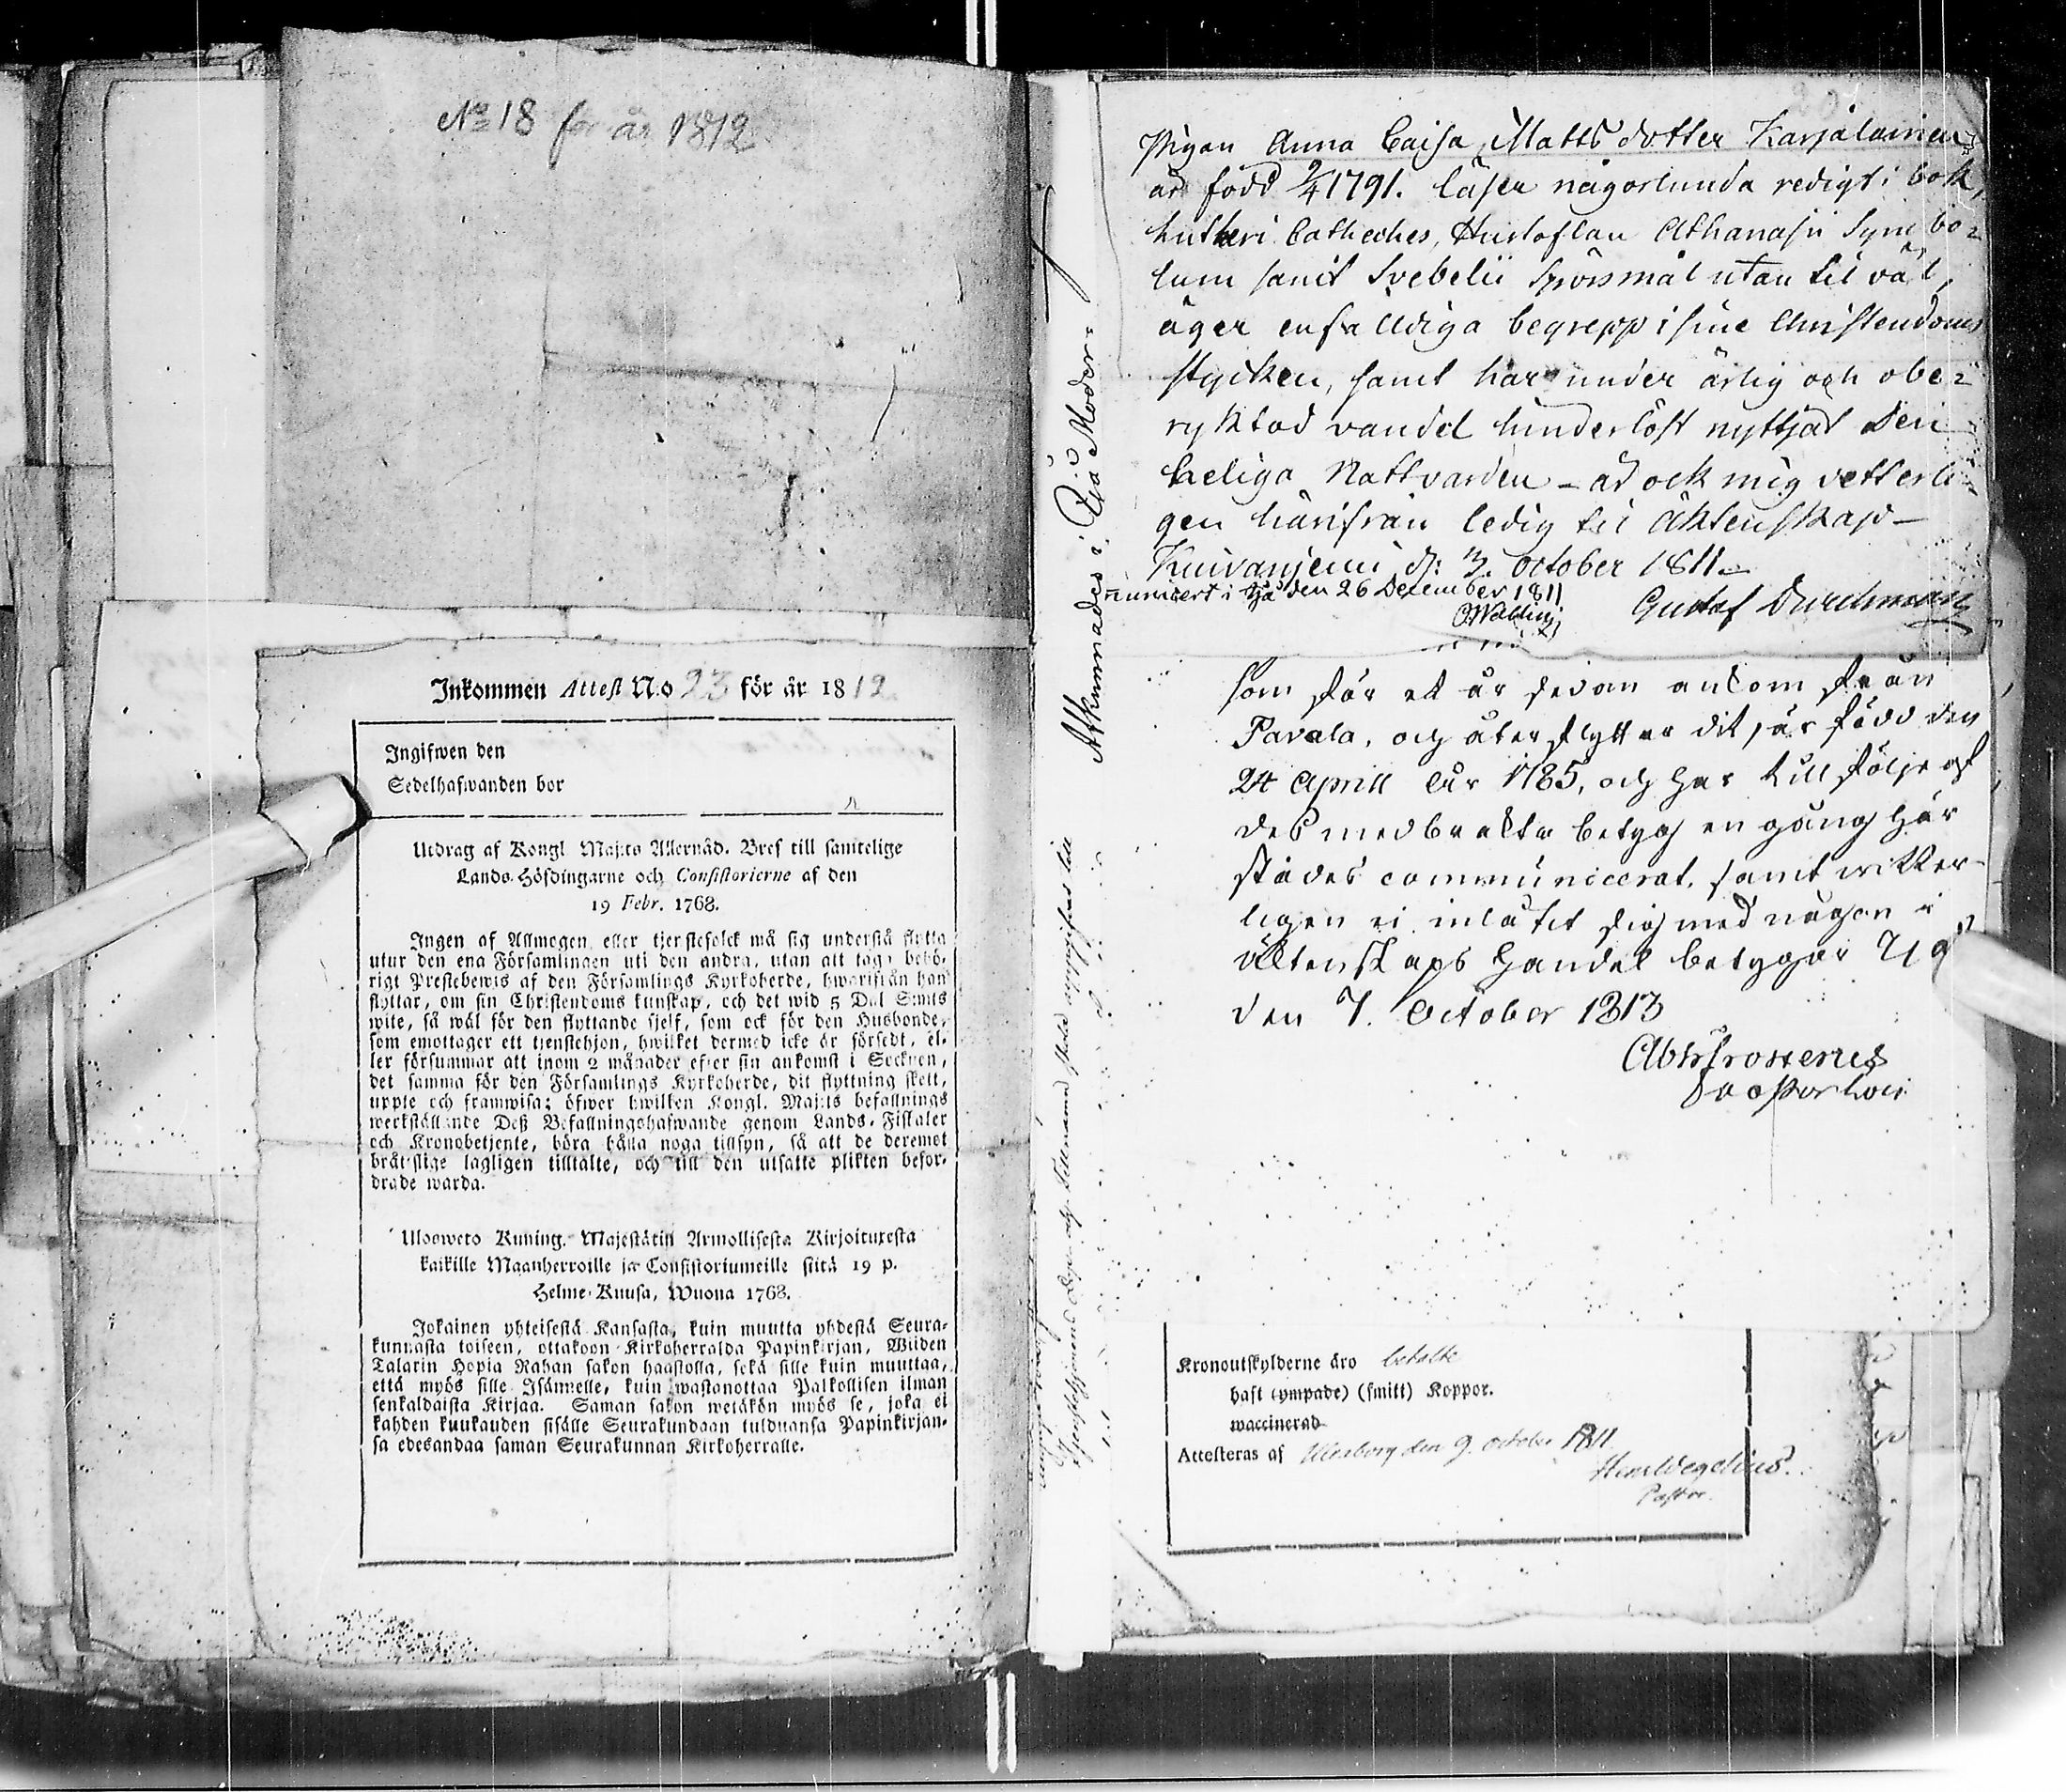 No 18 för år 1812
Inkommen Attest No 23 för år 1812
Ingifwen den
Sedelhafwanden bor
Utdrag af Kongl Maj:ts Allernåd. Bref till samtelige
Lands-Höfdingarne och Consistorierne af den
19 Febr. 1768.
Ingen af Allmogen eller tjenstefolck må sig understå flytta
utur den ena Församlingen uti den andra, utan att taga behö-
rigt Prestebewis af den Församlings Kyrkoherde, hwarifrån han
flyttar, om sin Christendoms kunskap, och det wid 5 Dal Smts
wite, så wäl för den flyttande sjelf, som ock för den Husbonde,
som emottager ett tjenstehjon, hwilket dermed icke är försedt, el-
ler försummar att inom 2 månader efter sin ankomst i Socknen,
det samma för den Församlings Kyrkoherde, dit flyttning skett,
uppte och framwisa; öfwer hwilken Kongl. Maj:ts befallnings
werkställande Deß Befallningshafwande genom Lands-Fiskaler
och Kronobetjente, böra hålla noga tillsyn, så att de deremot
bråtslige lagligen tilltalte, och till den utsatte plikten befor-
drade warda.
Uloswето Kuning. Majestätin Armollisesta Kirjoituxesta
kaikille Maanherroille ja Consistoriumeille siitä 19 p.
Helme-Kuusa, Wuona 1768.
Jokainen yhteisestä Kansasta, kuin muutta yhdestä Seura-
kunnasta toiseen, ottakoon Kirkoherralda Papinkirjan, Wiiden
Talarin Hopia Rahan sakon haastolla, sekä sille kuin muuttaa,
että myös sille Isännelle, kuin wastanottaa Palkollisen ilman
senkaldaista Kirjaa. Saman sakon wetäkön myös se, joka ei
kahden kuukauden sisälle Seurakundaan tulduansa Papinkirjan-
sa edesandaa saman Seurakunnan Kirkoherralle.
Afkunnades i Ijå Moder=
Pigan Anna Caisa Mattsdotter Karjalainen
är född 9/4 1791. läser någorlunda redigt i bok,
Lutheri Catheches, Hustaflan Athanasii Symbo=
lum samt Svebelii Spörsmål utan til väl,
äger enfalldiga begrepp i sine Christendoms
stycken, samt har under ärlig och obe=
ryktad vandel hinderlöst nyttjat Den
heliga Nattvarden - är ock mig vetterli=
gen härifrån ledig til äktenskap -
Kuivaniemi d: 3. October 1811.
municert i Ijå den 26 December 1811
Gustaf Durchman
som för et år sedan ankom från
Pavola, och återflyttar dit, är född den
24 Aprill år 1785, och har till följe af
des medbrakta betyg en gång här
städes communicerat, samt witter-
ligen ej inlåtit sig med någon i
äktenskaps handel betygar
den 7. October 1813
Abh Frosterus
Kronoutskylderne äro betalte
haft (ympade) (smitt) Koppor.
waccinerad
Attesteras af Uleåborg den 9. October 1811
Henr Wegelius.
Pastor.